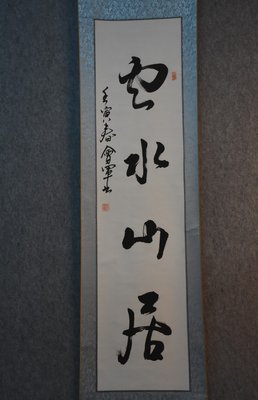 云水山居
壬寅春會軍书